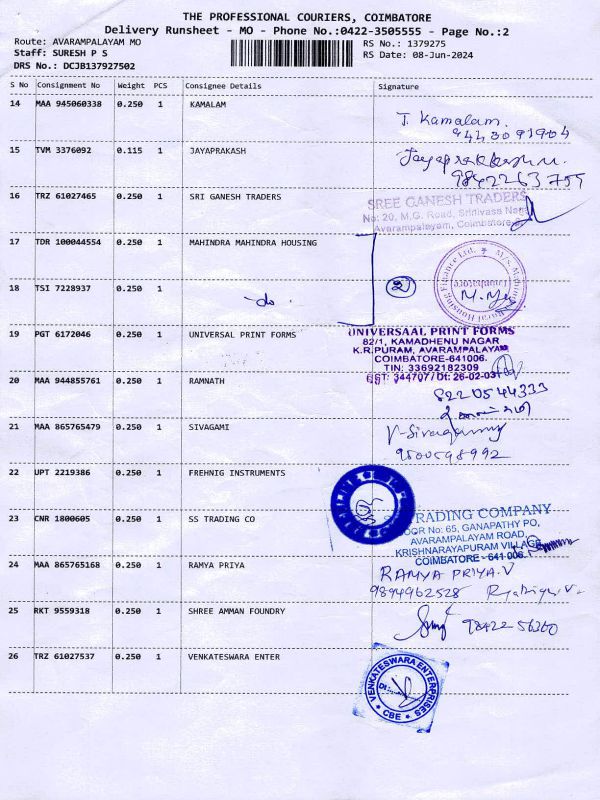 THE PROFESSIONAL COURIERS, COIMBATORE
Delivery Runsheet - MO - Phone No.:0422-3505555 - Page No.:2
Route: AVARAMPALAYAM MO
RS No.: 1379275
Staff: SURESH P S
RS Date: 08-Jun-2024
DRS No.: DCJB137927502
S No Consignment No Weight PCS Consignee Details Signature
14 MAA 945060338 0.250 1 KAMALAM
T. Kamalam.
15 TVM 3376092 0.115 1 JAYAPRAKASH
9842263755
16 TRZ 61027465 0.250 1 SRI GANESH TRADERS
SREE GANESH TRADERS
No: 20, M.G. Road, Srinivasa Nagar
Avarampalayam, Coimbatore
17 TDR 100044554 0.250 1 MAHINDRA MAHINDRA HOUSING
18 TSI 7228937 0.250 1
-do-
2
19 PGT 6172046 0.250 1 UNIVERSAL PRINT FORMS
UNIVERSAAL PRINT FORMS
82/1, KAMADHENU NAGAR
K.R.PURAM, AVARAMPALAYAM
COIMBATORE-641006.
TIN: 33692182309
CST: 344707/ Dt: 26-02-03
20 MAA 944855761 0.250 1 RAMNATH
8220544333
21 MAA 865765479 0.250 1 SIVAGAMI
V-Sivagammy
9500598992
22 UPT 2219386 0.250 1 FREHNIG INSTRUMENTS
23 CNR 1800605 0.250 1 SS TRADING CO
TRADING COMPANY
DOOR No: 65, GANAPATHY PO,
AVARAMPALAYAM ROAD,
KRISHNARAYAPURAM VILLAGE,
COIMBATORE - 641 006.
24 MAA 865765168 0.250 1 RAMYA PRIYA
RAMYA PRIYA.V
9894962528
25 RKT 9559318 0.250 1 SHREE AMMAN FOUNDRY
98422 56360
26 TRZ 61027537 0.250 1 VENKATESWARA ENTER
VENKATESWARA ENTERPRISES
CBE